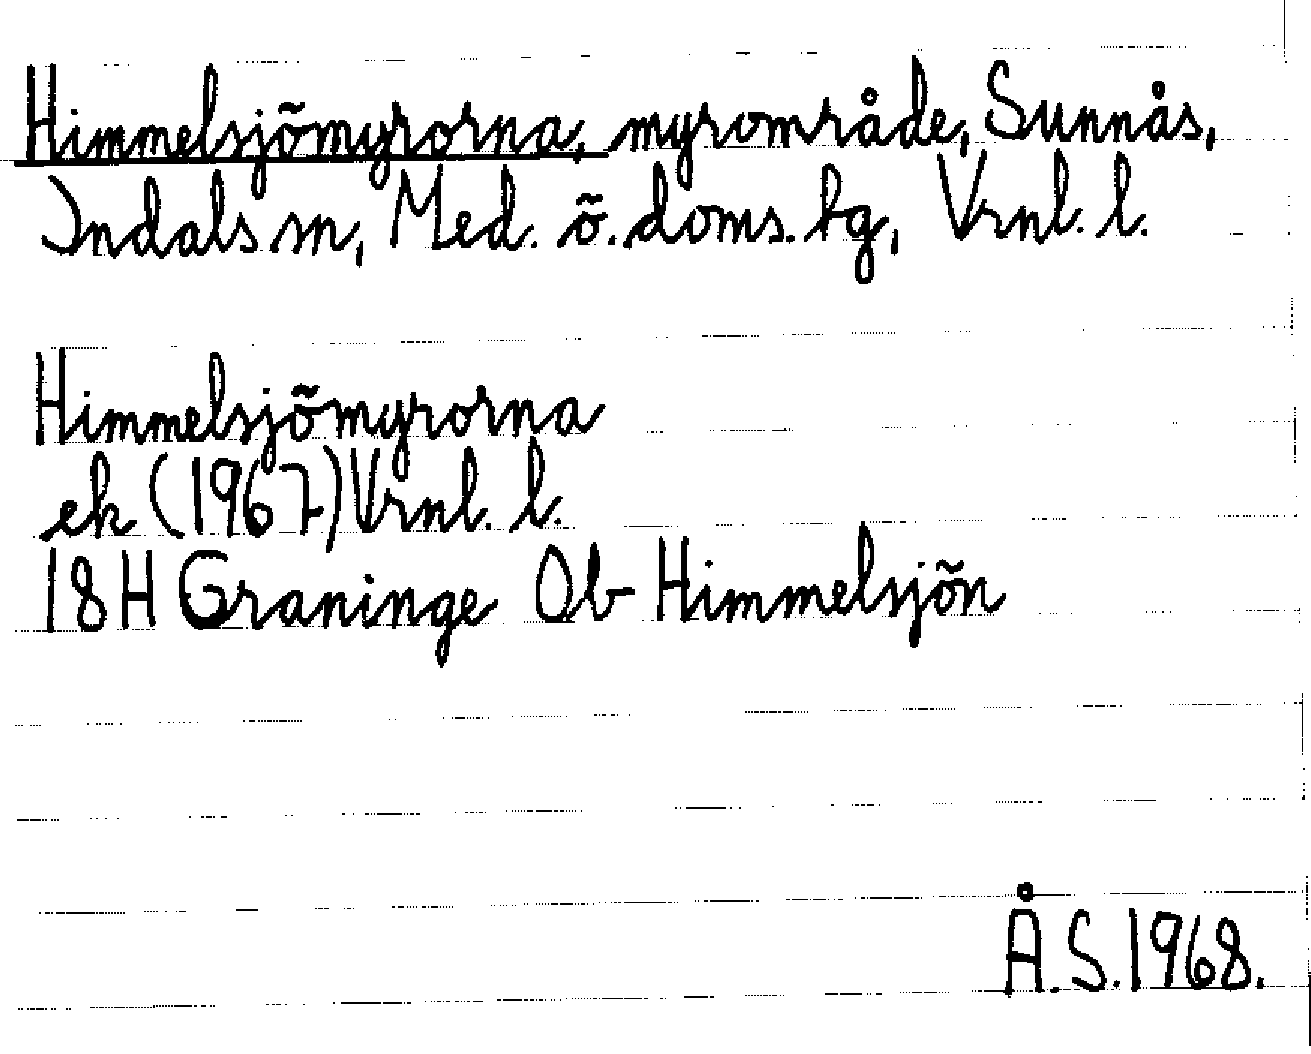 Himmelsjömyrorna, myrområde, Sunnås,
Indals sn, Med. ö. doms. tg, Vrnl. l.
Himmelsjömyrorna
ek (1967) Vrnl. l.
18H Graninge Ob Himmelsjön
Å.S. 1968.